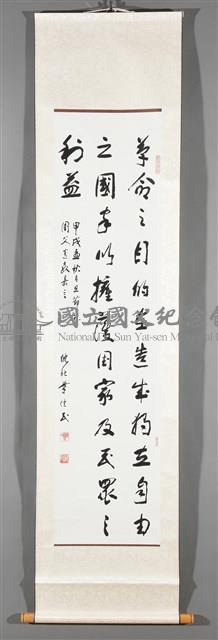 革命之目的在造成獨立自由
之國家以擁護國家及民眾之
利益
甲戌孟秋月旦節錄
國父遺教
國立國父紀念館
National Dr. Sun Yat-sen Memorial